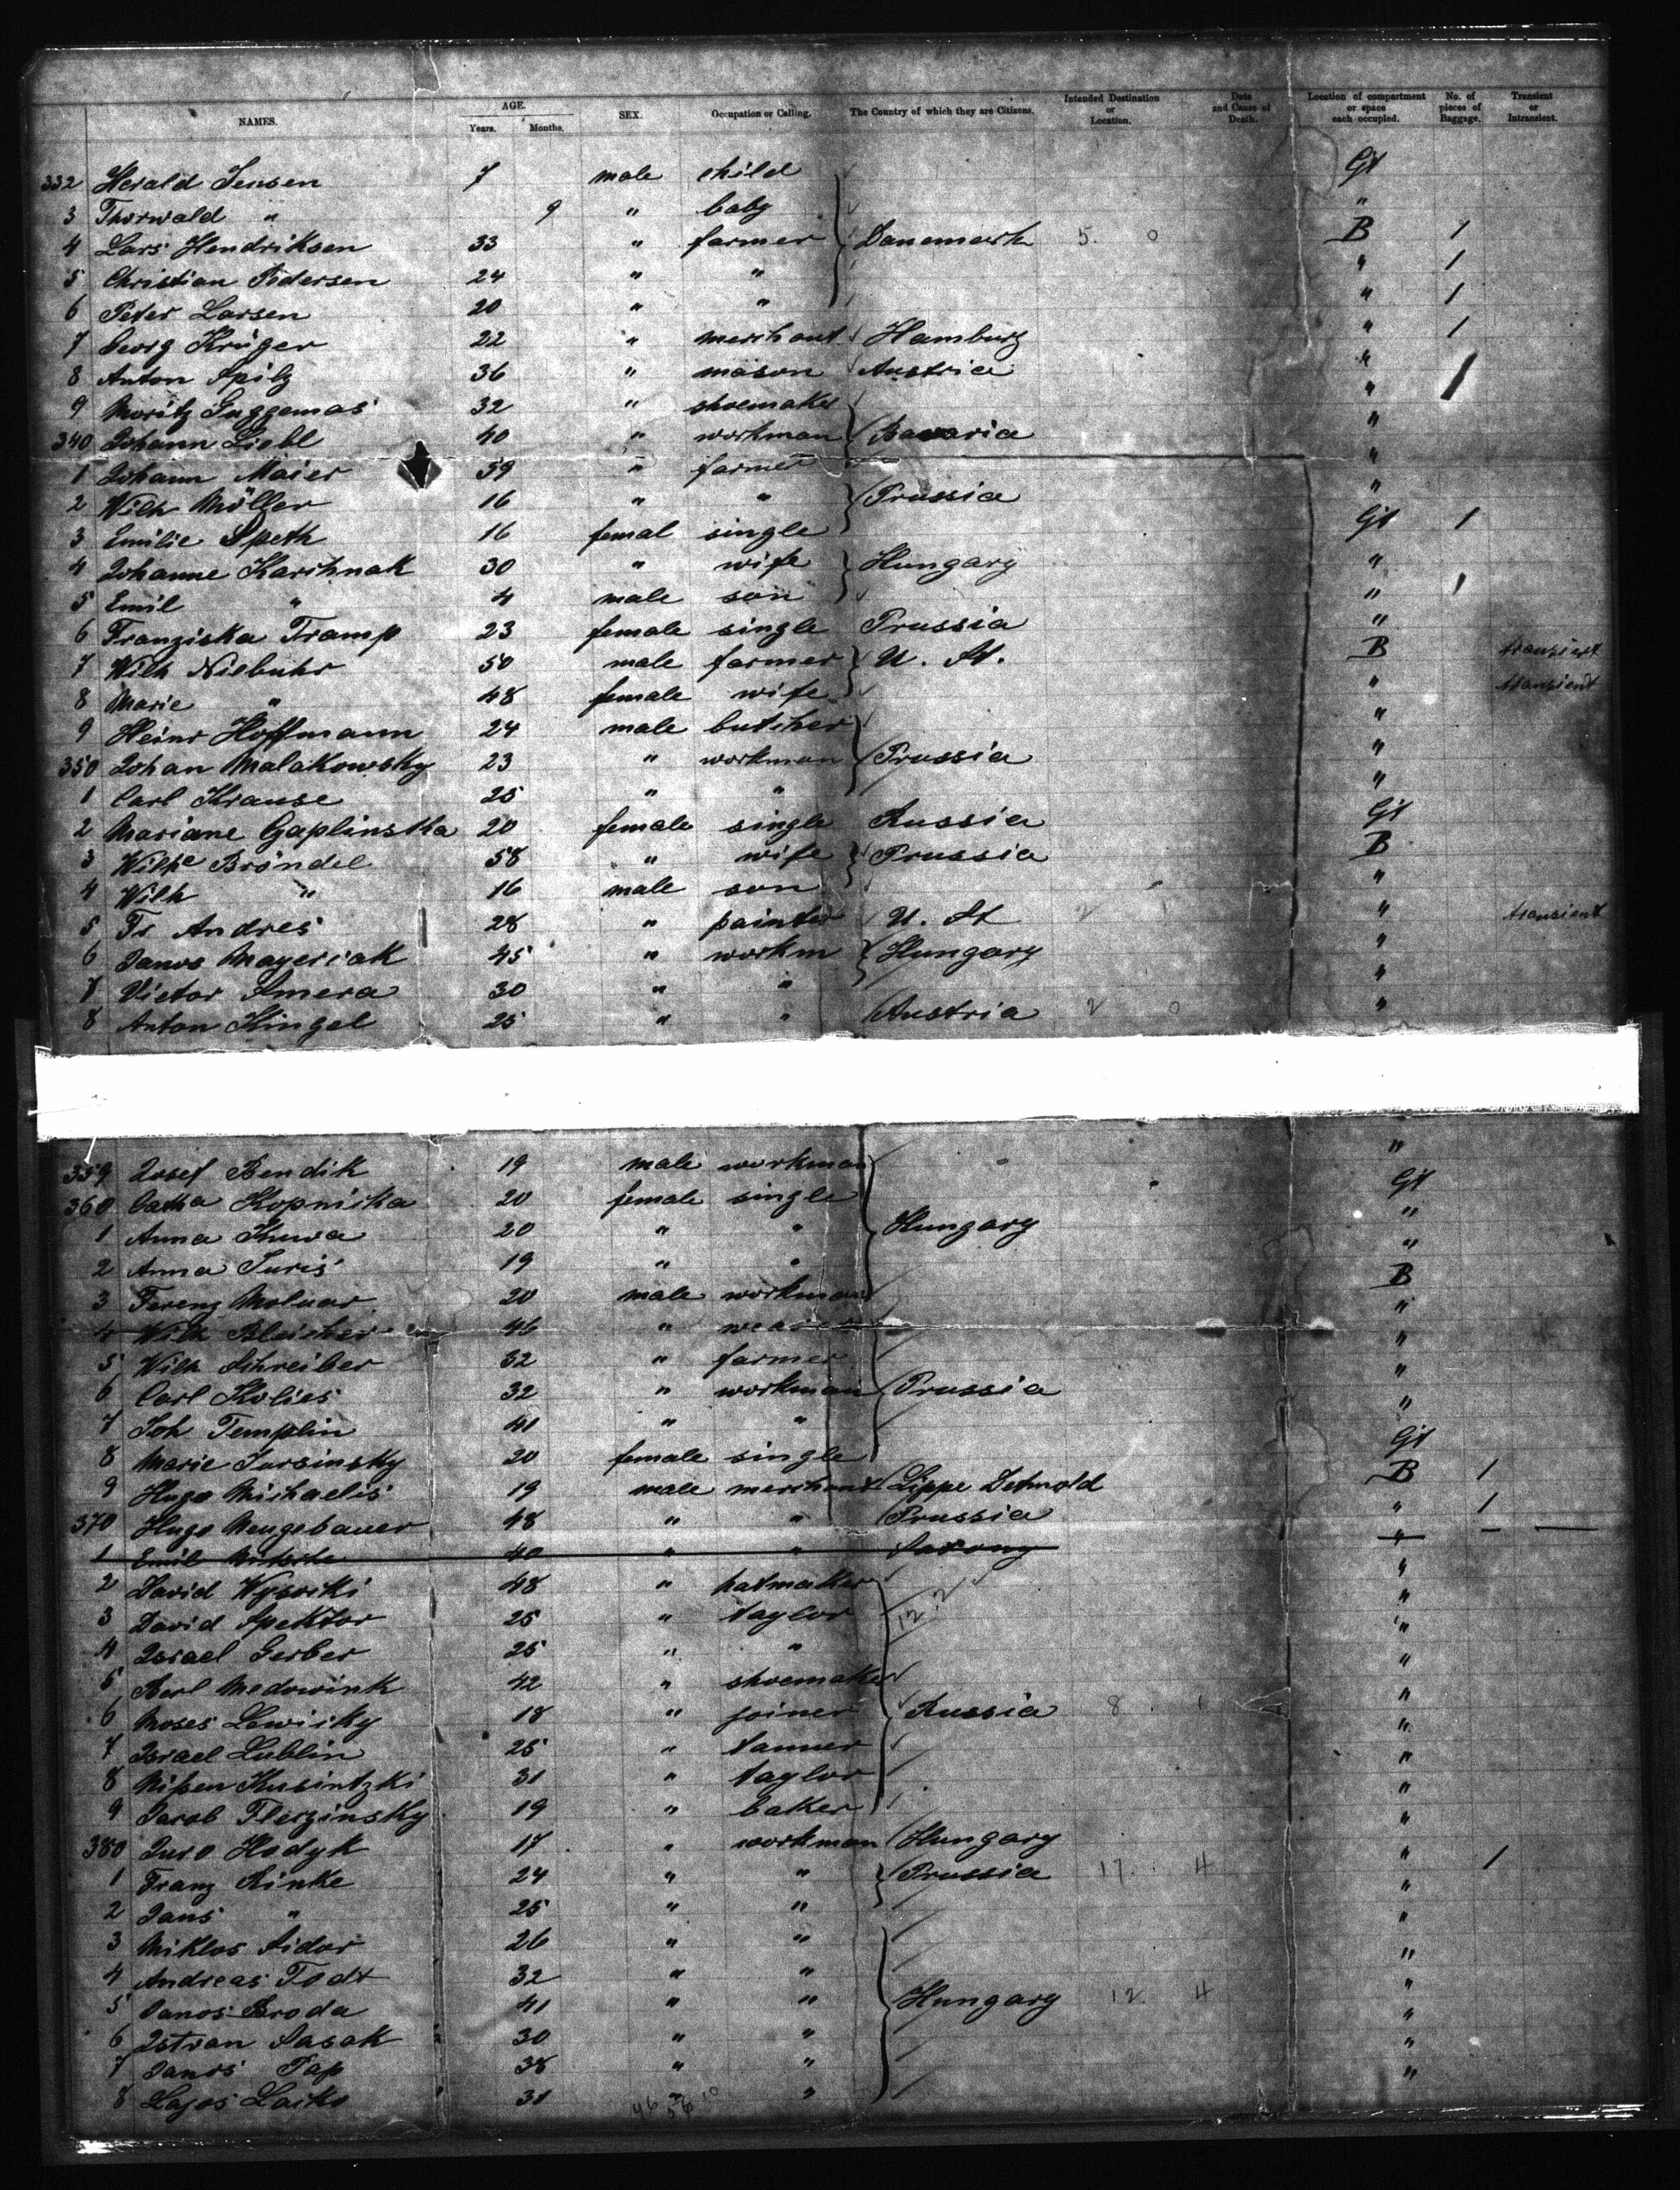 NAMES. AGE. Years. Months. SEX. Occupation or Calling. The Country of which they are Citizens. Intended Destination or Location. Date and Cause of Death. Location of compartment or space each occupied. No. of pieces of Baggage. Transient or Intransient.
332 Herald Jensen 7 male child Gt
3 Thorwald " 9 " baby "
4 Lars Hendriksen 33 " farmer Danemark 5. 0 B 1
5 Christian Pedersen 24 " " " 1
6 Peter Larsen 20 " " " 1
7 Georg Krüger 22 " merchant Hamburg " 1
8 Anton Spilz 36 " mason Austria " 1
9 Moritz 32 " shoemaker "
340 Johann Liebl 40 " workman Bavaria "
1 Johann Maier 59 " farmer "
2 Wilh Möller 16 " " Prussia "
3 Emilie Speth 16 femal single Gt 1
4 Johanne Karchnak 30 " wife Hungary "
5 Emil " 4 male son " 1
6 Franziska Tramp 23 female single Prussia "
7 Wilh Niebuhr 50 male farmer U. St. B transient
8 Marie " 48 female wife " transient
9 Heinr Hoffmann 24 male butcher "
350 Johan Malakowsky 23 " workman Prussia "
1 Carl Krause 25 " " "
2 Mariane Gaplinska 20 female single Russia Gt
3 Wilhe Bröndel 58 " wife Prussia B
4 Wilh " 16 male son "
5 Fr Andres 28 " painter U. St 2 1 " transient
6 Janos Mayeriak 45 " workm Hungary "
7 Victor Smera 30 " " "
8 Anton Kingel 25 " " Austria 2 0 "
359 Josef Bendik 19 male workman "
360 Catha Kopnicka 20 female single Gt
1 Anna 20 " " Hungary "
2 Anna Juris 19 " " "
3 Ferenz Molnar 20 male workman B
4 Wilh Bleicher 46 " "
5 Wilh Schreiber 32 " farmer "
6 Carl Kolies 32 " workman Prussia "
7 Joh Templin 41 " " "
8 Marie Jursinsky 20 female single Gt
9 Hugo Michaelis 19 male merchant Lippe Detmold B 1
370 Hugo Neugebauer 48 " " Prussia " 1
1 Emil Nitsche 40 " " Saxony "
2 David Wysocki 48 " hatmaker "
3 David Spektor 25 " taylor 12.2 "
4 Israel Gerber 25 " " "
5 Berl Medowink 42 " shoemaker "
6 Moses Lewisky 18 " joiner Russia 8. 1 "
7 Israel Lublin 25 " tanner "
8 Nißen Kusintzki 31 " taylor "
9 Jacob Flerzinsky 19 " baker "
380 Juro Hodyk 17 " workman Hungary "
1 Franz Rinke 24 " " Prussia 17. 4 " 1
2 Jans " 25 " " "
3 Miklos Sidor 26 " " "
4 Andreas Todt 32 " " "
5 Janos Broda 41 " " Hungary 12. 4 "
6 Istvan Sasak 30 " " "
7 Janos Pap 38 " " "
8 Lajos Lacko 31 " " "
46 56 10